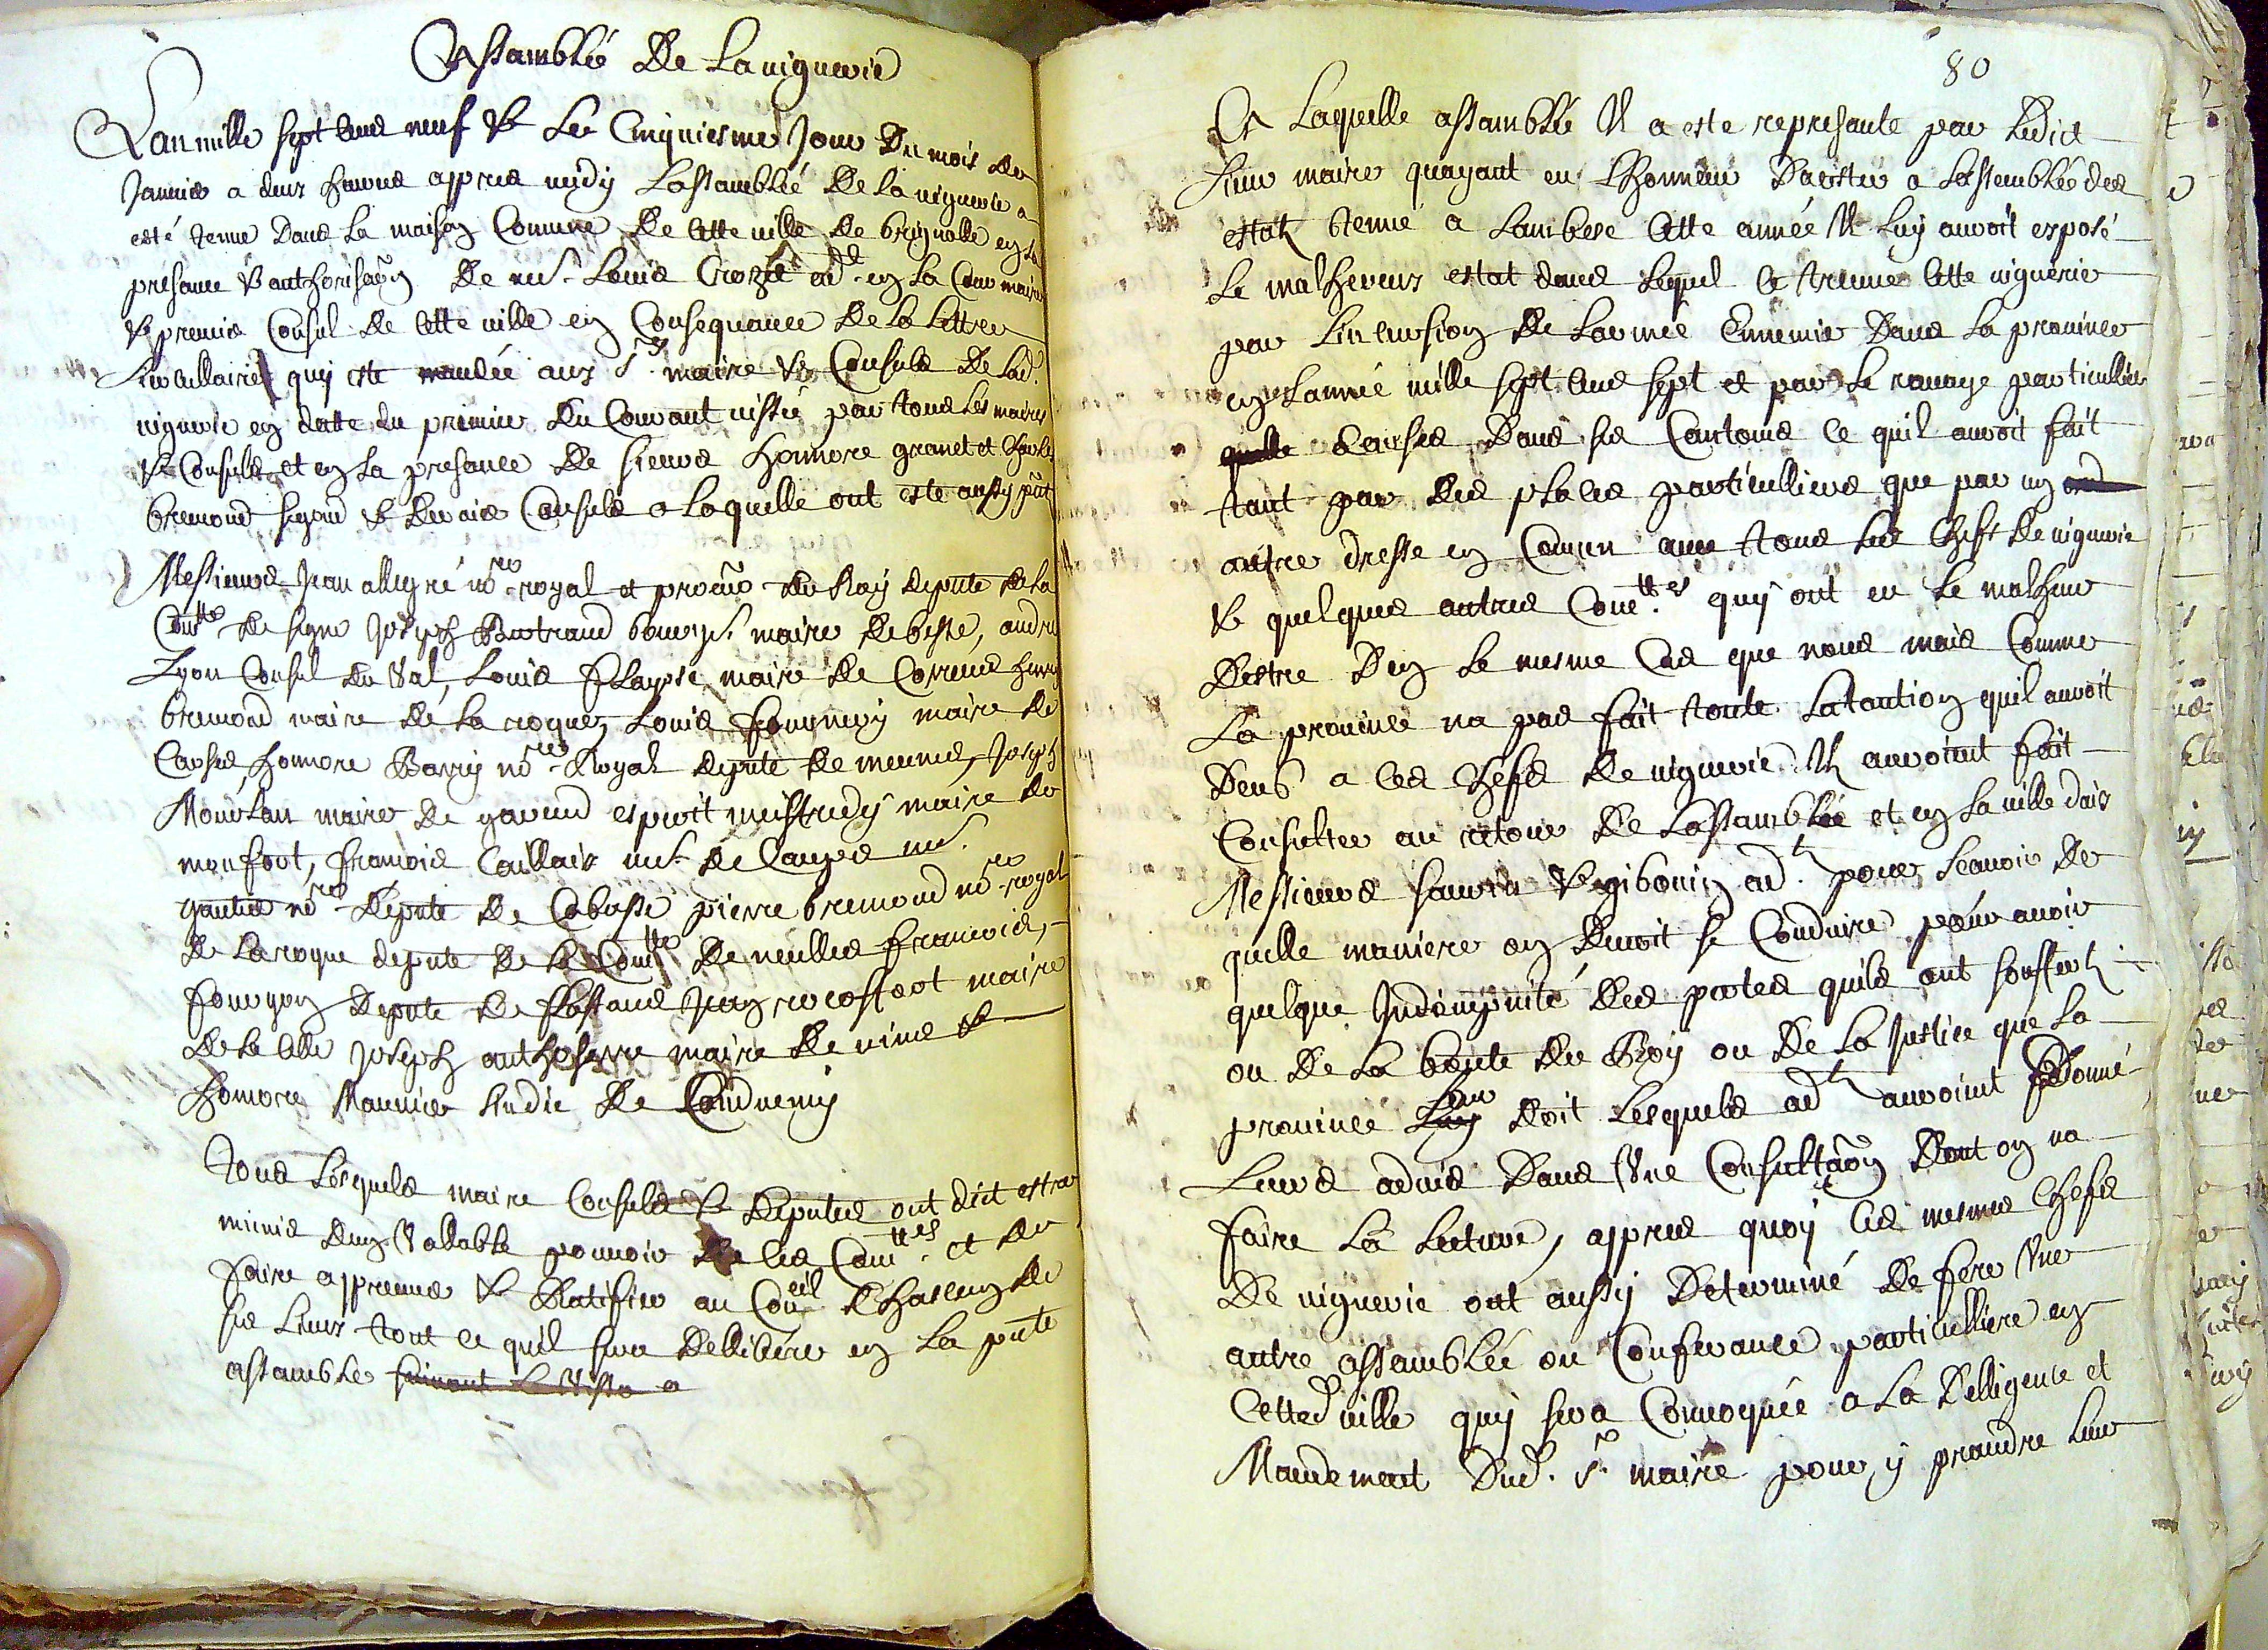 Assamblée De La viguerie
Lan mille sept cens neuf & Le Cinquiesme Jour Du mois de
Janvier a deux heures appres midy Lassamblée De la viguerie a
esté tenue Dans La maison Comune De Cette ville De brignolle en la
presance & authorisãon De mr. Louis Croze ad. en la Cour maire
& premier Consul De Cette ville en Consequance De la Lettre
Circullaire quy este mandée aux Srs. maire & Consuls De lad.
viguerie en datte du premier Du Courant vissée par tous Les maires
& Consuls et en la presance De sieurs Honnore granet et Charles
bremond segond & dernier Consuls a Laquelle ont esté aussy pnt
Messieurs Jean allegre nore. royal et procur du Roy depute de la
Comtte De signe Joseph Bertrand bourgs. maire De besse, andre
Lyon Consul du Val, Louis maire De Correns henry
bremond maire de la roque, Louis fournery maire de
Carses, honnore Barry nore. Royal depute de meunes, Joseph
Monlan maire De gareud esprit maire de
monfort, francois Caillais mr. de Camps mr.
gautier nore. Depute De Cabasse pierre bremond nore. royal
De Laroque depute de la Comtte De neulles francois,
fouragon Depute De flassans Jean rocofort maire
De la Celle Joseph anthosserre maire De vins &
honnore Maunier sindic De Candumy
Tous Lesquels maire Consuls & Deputes ont dict estre
munis dung Vallable pouvoir De Ces Comttes. et De
faire appreuver & Ratifier au Conseil Chascung de
ses Lieux tout ce quil sera Dellibéré en La pnte
assamblee suivant
80
A Laquelle assamblée Il a este represante par Ledict
sieur maire quayant eu Lhonneur Dacister a Lassemblée des
estatz tenue a Lambesc Cette année Il luy auroit exposé
Le malheureux estat dans Lequel Ce treuve Cette viguerie
par Lincursion De Larmée Ennemie Dans La province
en Lannée mille sept cens sept et par Le ravage particullier
quelle Causes Dans ses Cantons Ce quil auroit fait
tant par des places particullieres que par un
autre dresse en Comun avec tous Les Chefs De viguerie
& quelques autres Comttes. quy ont eu Le malheur
Destre Den Le mesme Cas que nous mais Comme
La province na pas fait toute Latantion quil auroit
Deub a Ces Chefs De viguerie Ilz auroint fait
Consulter au retour De Lassamblée et en La ville daix
Messieurs saurin & gibouin adtz. pour Scavoir De
quelle maniere on Devoit se Conduire pour avoir
quelque Indempnité Des pertes quils ont souffertz
ou De La bonte du Roy ou De La Justice que La
province Leur doit Lesquels adtz auroint Donné
Leurs advis Dans Une Consultãon Dont on va
faire La Lecture, appres quoy Ces mesmes Chefs
De viguerie ont aussy Determiné De fere Une
autre assamblée ou Conferance particulliere en
Cetted. ville quy sera Convoquée a La Delligence et
Mandement Dud. Sr. maire pour y prandre Leur